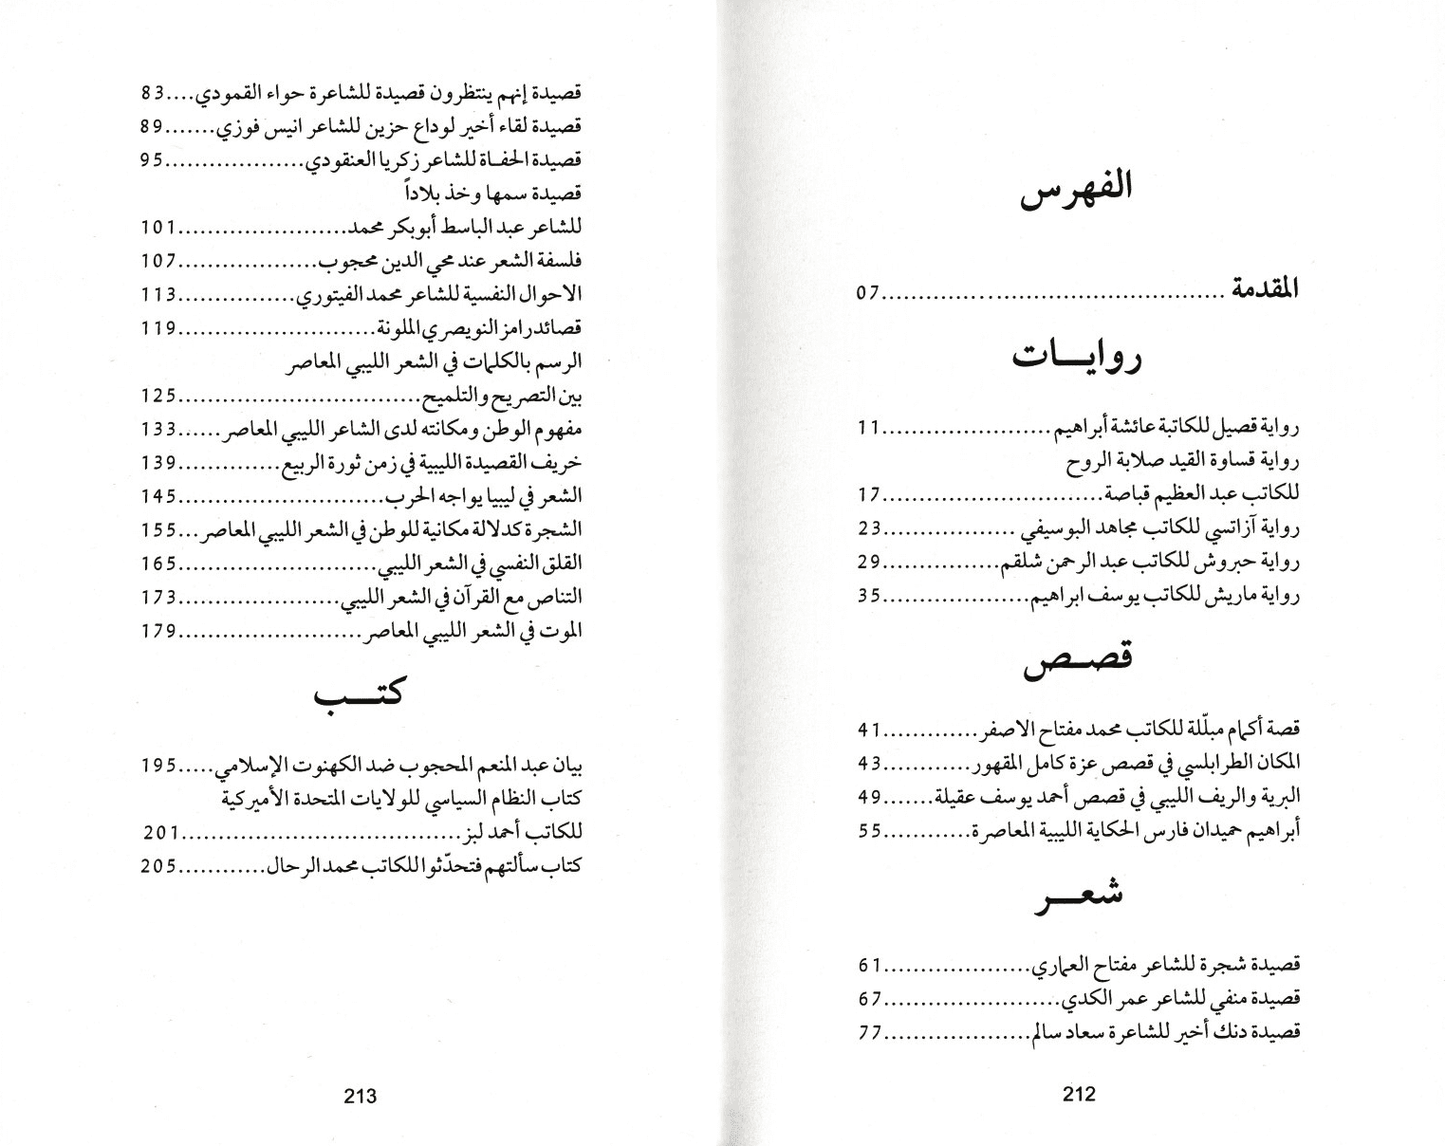 الفهرس
المقدمة ............................................07
روايـــات
رواية قصيل للكاتبة عائشة أبراهيم.......................11
رواية قساوة القيد صلابة الروح
للكاتب عبد العظيم قباصة..............................17
رواية آزاتسي للكاتب مجاهد البوسيفي ..................23
رواية حبروش للكاتب عبد الرحمن شلقم................29
رواية ماريش للكاتب يوسف ابراهيم....................35
قصــص
قصة أكمام مبلّلة للكاتب محمد مفتاح الاصفر.............41
المكان الطرابلسي في قصص عزة كامل المقهور............43
البرية والريف الليبي في قصص أحمد يوسف عقيلة.......49
أبراهيم حميدان فارس الحكاية الليبية المعاصرة............55
شعـــر
قصيدة شجرة للشاعر مفتاح العماري....................61
قصيدة منفي للشاعر عمر الكدي........................67
قصيدة دنك أخير للشاعرة سعاد سالم....................77
212
قصيدة إنهم ينتظرون قصيدة للشاعرة حواء القمودي....83
قصيدة لقاء أخير لوداع حزين للشاعر انيس فوزي.......89
قصيدة الحفـاة للشاعر زكريا العنقودي...................95
قصيدة سمها وخذ بلاداً
للشاعر عبد الباسط أبوبكر محمد.......................101
فلسفة الشعر عند محي الدين محجوب...................107
الاحوال النفسية للشاعر محمد الفيتوري................113
قصائد رامز النويصري الملونة...........................119
الرسم بالكلمات في الشعر الليبي المعاصر
بين التصريح والتلميح.................................125
مفهوم الوطن ومكانته لدى الشاعر الليبي المعاصر......133
خريف القصيدة الليبية في زمن ثورة الربيع..............139
الشعر في ليبيا يواجه الحرب............................145
الشجرة كدلالة مكانية للوطن في الشعر الليبي المعاصر...155
القلق النفسي في الشعر الليبي...........................165
التناص مع القرآن في الشعر الليبي......................173
الموت في الشعر الليبي المعاصر.........................179
كتـــب
بيان عبد المنعم المحجوب ضد الكهنوت الإسلامي.....195
كتاب النظام السياسي للولايات المتحدة الأميركية
للكاتب أحمد لبز......................................201
كتاب سألتهم فتحدّثوا للكاتب محمد الرحال............205
213